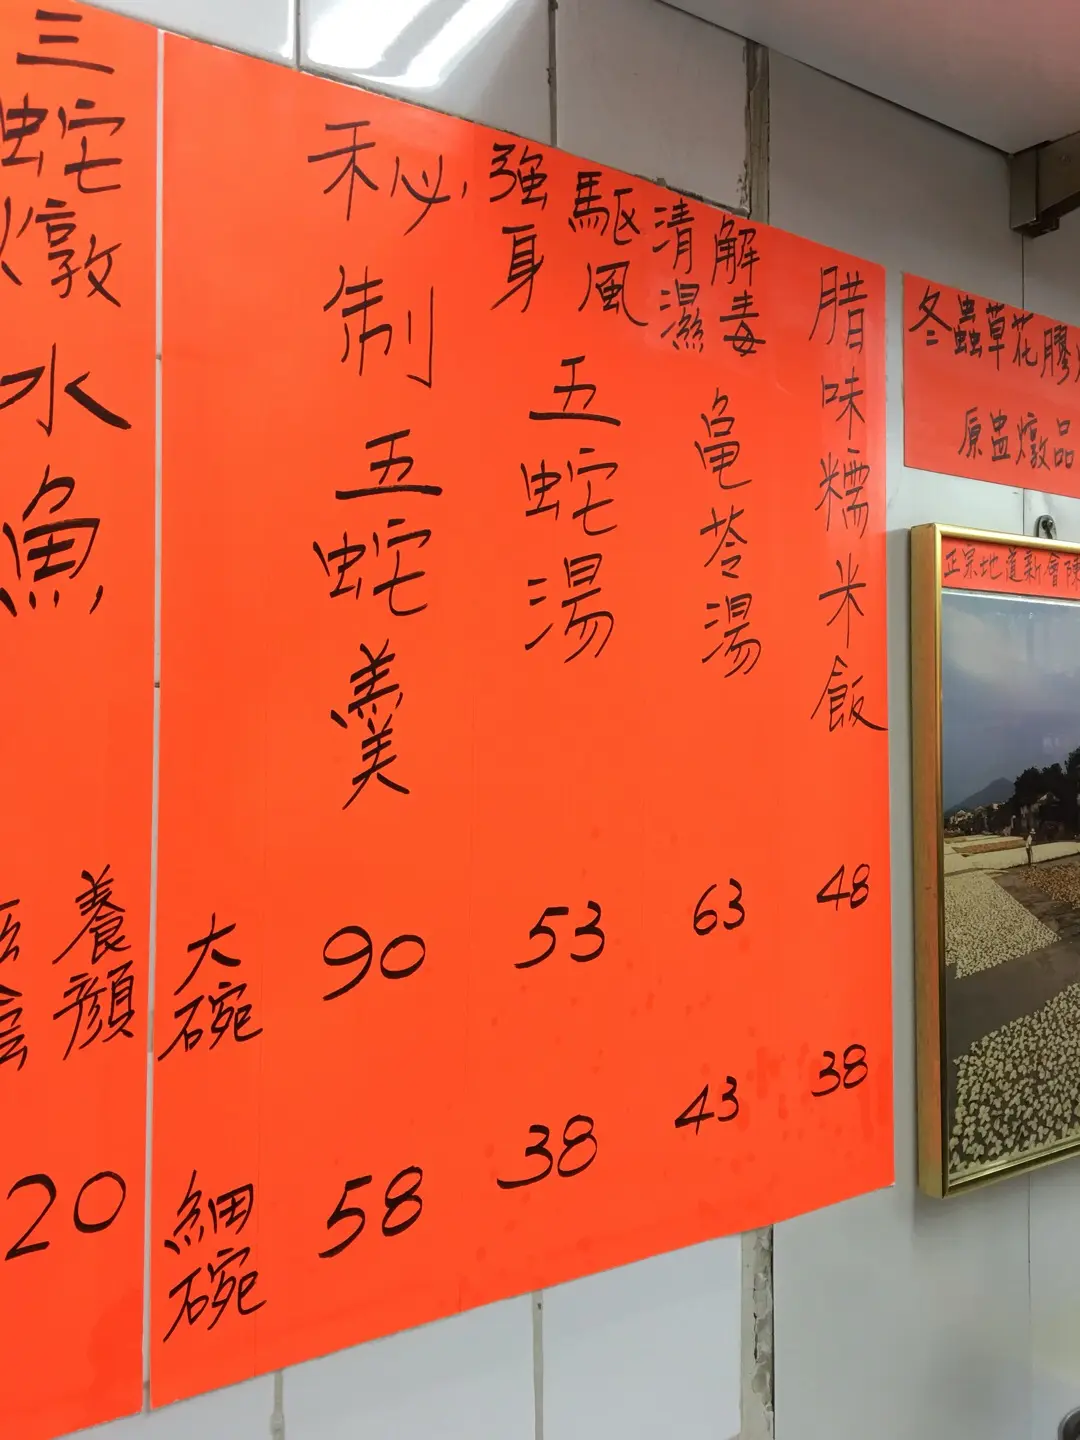 三蛇燉水魚
養顏
20
大碗
細碗
秘制五蛇羹
90
58
強身
驅風
五蛇湯
53
38
清濕
解毒
龟苓湯
63
43
腊味糯米飯
48
38
冬蟲草花膠
原盅燉品
正宗地道新會陳